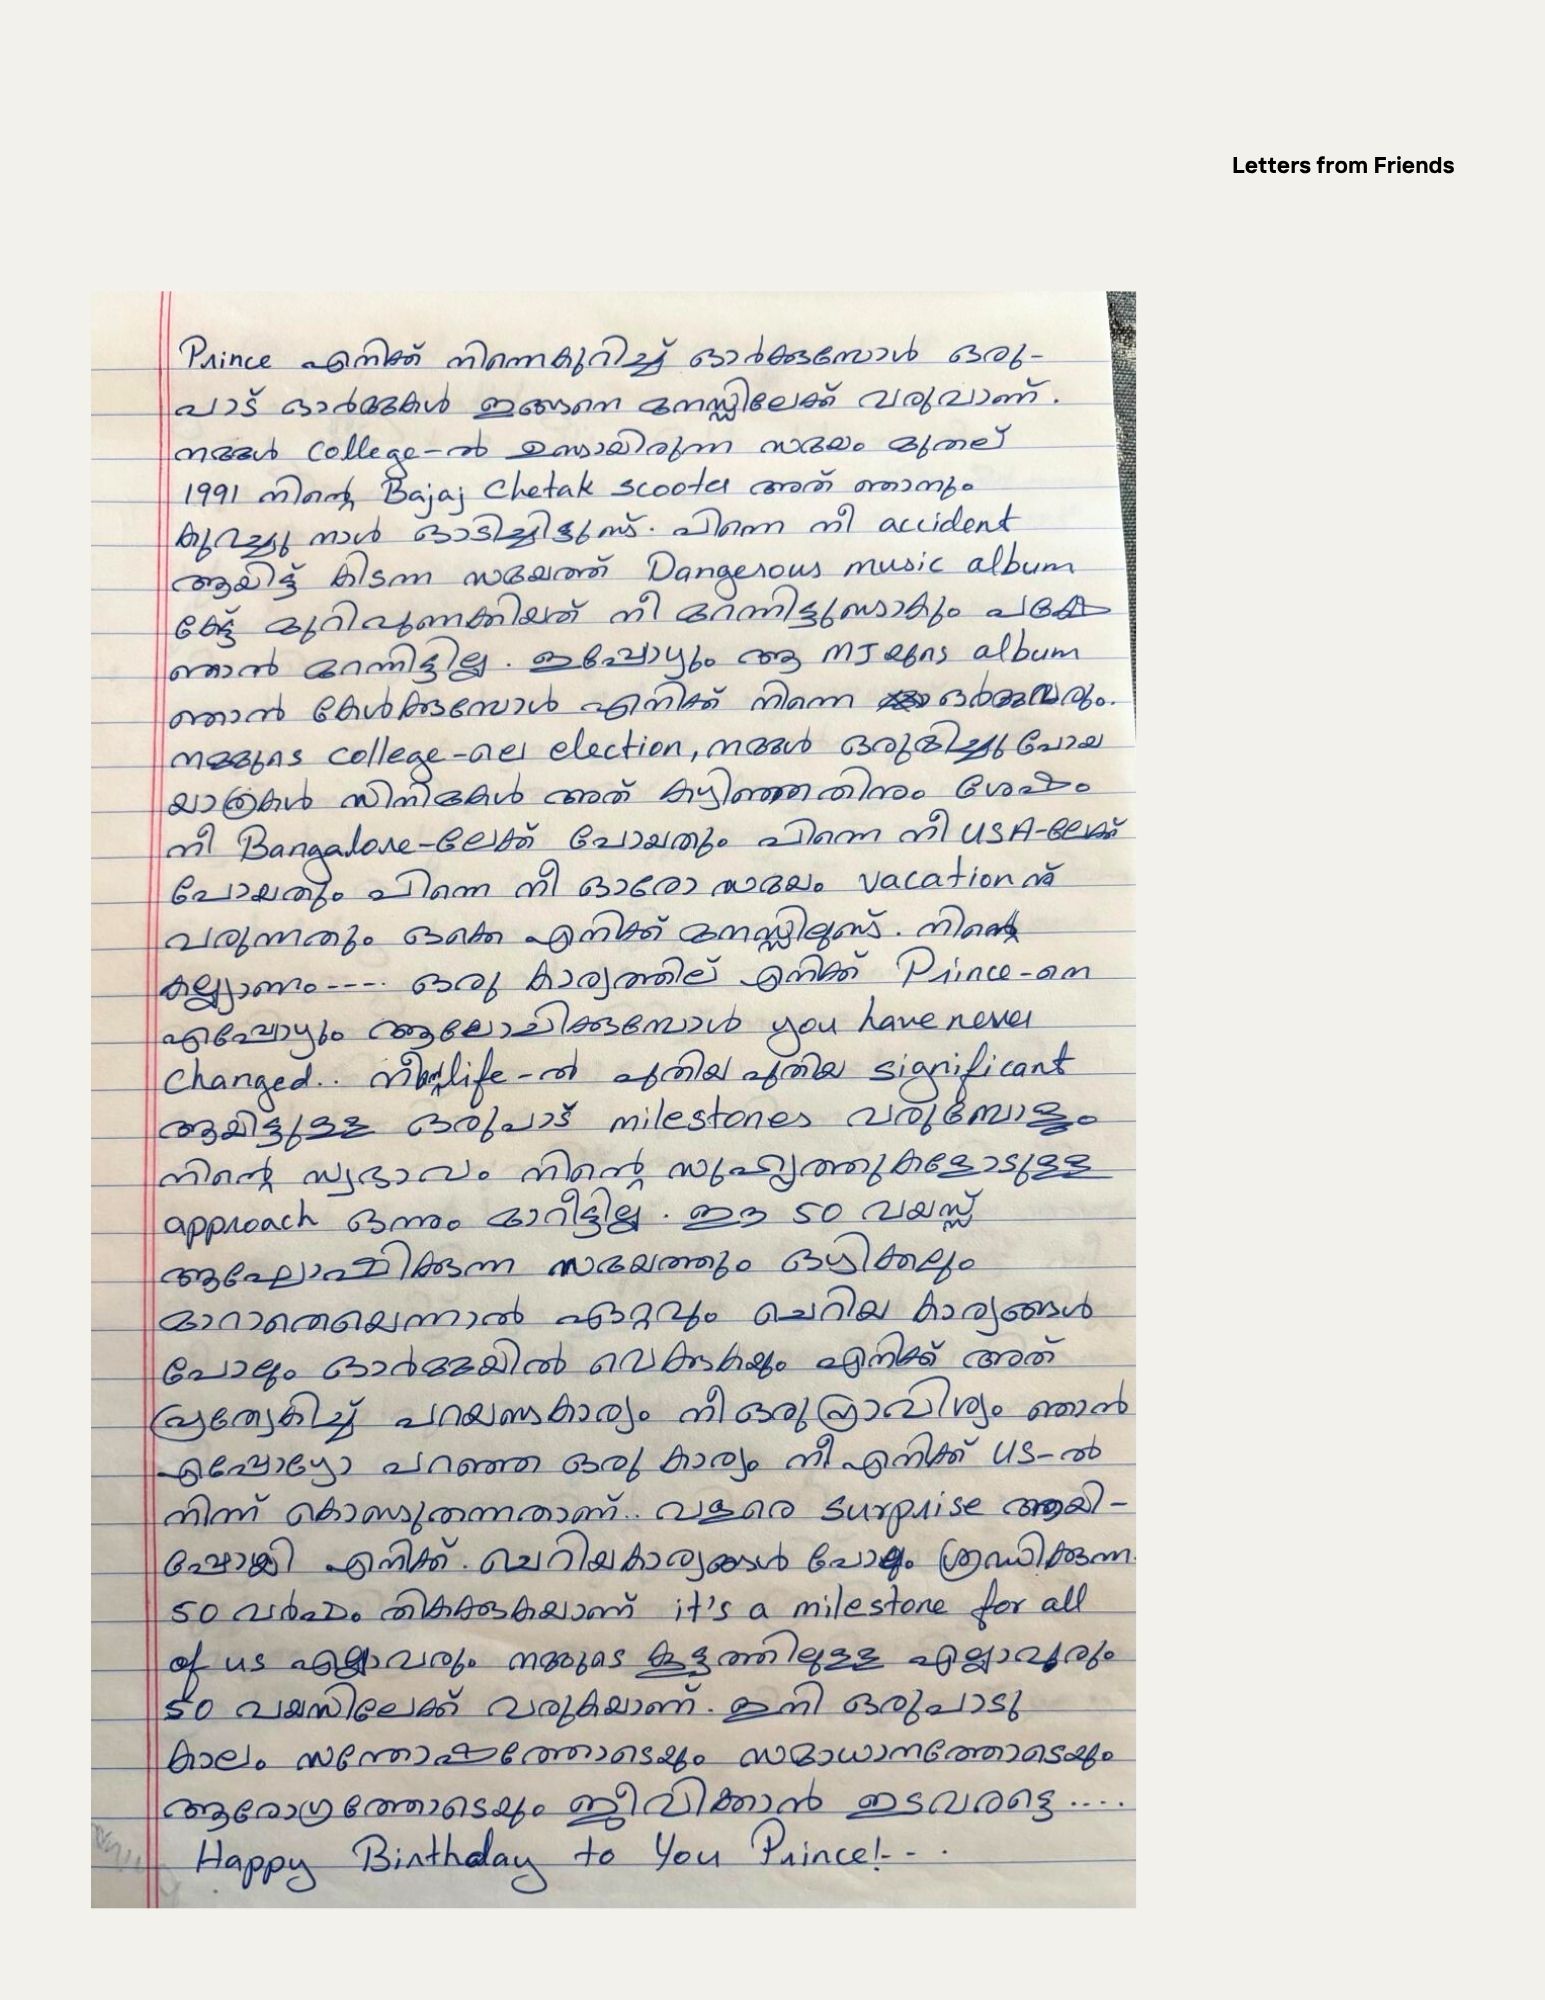 Letters from Friends
Prince എനിക്ക് നിന്നെകുറിച്ച് ഓർക്കുമ്പോൾ ഒരു-
പാട് ഓർമ്മകൾ ഇങ്ങനെ മനസ്സിലേക്ക് വരുവാണ്.
നമ്മൾ college-ൽ ഉണ്ടായിരുന്ന സമയം മുതല്
1991 നിന്റെ Bajaj Chetak scooter അത് ഞാനും
കുറച്ചു നാൾ ഓടിച്ചിട്ടുണ്ട്. പിന്നെ നീ accident
ആയിട്ട് കിടന്ന സമയത്ത് Dangerous music album
കേട്ട് മുറിവുണക്കിയത് നീ മറന്നിട്ടുണ്ടാകും പക്ഷേ
ഞാൻ മറന്നിട്ടില്ല. ഇപ്പോഴും ആ MJ യുടെ album
ഞാൻ കേൾക്കുമ്പോൾ എനിക്ക് നിന്നെ ഓർമ്മവരും.
നമ്മുടെ college-ലെ election, നമ്മൾ ഒരുമിച്ചു പോയ
യാത്രകൾ സിനിമകൾ അത് കഴിഞ്ഞതിനും ശേഷം
നീ Bangalore-ലേക്ക് പോയതും പിന്നെ നീ USA-ലേക്ക്
പോയതും പിന്നെ നീ ഓരോ സമയം vacation ന്
വരുന്നതും ഒക്കെ എനിക്ക് മനസ്സിലുണ്ട്. നിന്റെ
കല്ല്യാണം---- ഒരു കാര്യത്തില് എനിക്ക് Prince-നെ
എപ്പോഴും ആലോചിക്കുമ്പോൾ you have never
Changed.. നിന്റെ life-ൽ പുതിയ പുതിയ significant
ആയിട്ടുള്ള ഒരുപാട് milestones വരുമ്പോളും
നിന്റെ സ്വഭാവം നിന്റെ സുഹൃത്തുകളോടുള്ള
approach ഒന്നും മാറീട്ടില്ല. ഈ 50 വയസ്സ്
ആഘോഷിക്കുന്ന സമയത്തും ഒഴിക്കലും
മാറാതെയെന്നാൽ ഏറ്റവും ചെറിയ കാര്യങ്ങൾ
പോലും ഓർമ്മയിൽ വെക്കുകയും എനിക്ക് അത്
പ്രത്യേകിച്ച് പറയണ്ടകാര്യം നീ ഒരു പ്രാവിശ്യം ഞാൻ
എപ്പോഴോ പറഞ്ഞ ഒരു കാര്യം നീ എനിക്ക് US-ൽ
നിന്ന് കൊണ്ടുതന്നതാണ്.. വളരെ surprise ആയി-
പ്പോയി എനിക്ക്. ചെറിയകാര്യങ്ങൾ പോലും ശ്രദ്ധിക്കുന്ന
50 വർഷം തികക്കുകയാണ് it's a milestone for all
of us എല്ലാവരും നമ്മുടെ കൂട്ടത്തിലുള്ള എല്ലാവരും
50 വയസിലേക്ക് വരുകയാണ്. ഇനി ഒരുപാടു
കാലം സന്തോഷത്തോടെയും സമാധാനത്തോടെയും
ആരോഗ്യത്തോടെയും ജീവിക്കാൻ ഇടവരട്ടെ....
Happy Birthday to You Prince!--.